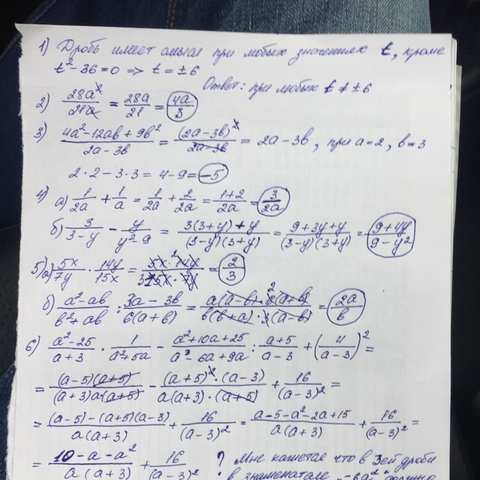 1) Дробь имеет смысл при любых значениях t, кроме
t² - 36 = 0 => t = ±6
Ответ: при любых t ≠ ±6
2) 28a²/21a = 28a/21 = 4a/3
3) (4a² - 12ab + 9b²)/(2a - 3b) = (2a - 3b)²/(2a - 3b) = 2a - 3b, при a = 2, b = 3
2·2 - 3·3 = 4 - 9 = -5
4) а) 1/2a + 1/a = 1/2a + 2/2a = (1+2)/2a = 3/2a
б) 3/(3-y) - y/(y²-9) = (3(3+y)+y)/((3-y)(3+y)) = (9+3y+y)/((3-y)(3+y)) = (9+4y)/(9-y²)
5) а) 5x/7y · 14y/15x = 5x·14y/15x·7y = 2/3
б) (a²-ab)/(b²+ab) : (3a-3b)/(6(a+b)) = a(a-b)·6(a+b)/b(b+a)·3(a-b) = 2a/b
6) (a²-25)/(a+3) · 1/(a²+5a) - (a²+10a+25)/(a³-6a+9a) : (a+5)/(a-3) + (4/(a-3))²
= (a-5)(a+5)/(a+3)a(a+5) - (a+5)²·(a-3)/a(a+3)·(a+5) + 16/(a-3)² =
= ((a-5)-(a+5)(a-3))/a(a+3) + 16/(a-3)² = (a-5-a²-2a+15)/a(a+3) + 16/(a-3)² =
= (10-a-a²)/a(a+3) + 16/(a-3)² ? Мне кажется что в 3ей дроби
в знаменателе -6a²